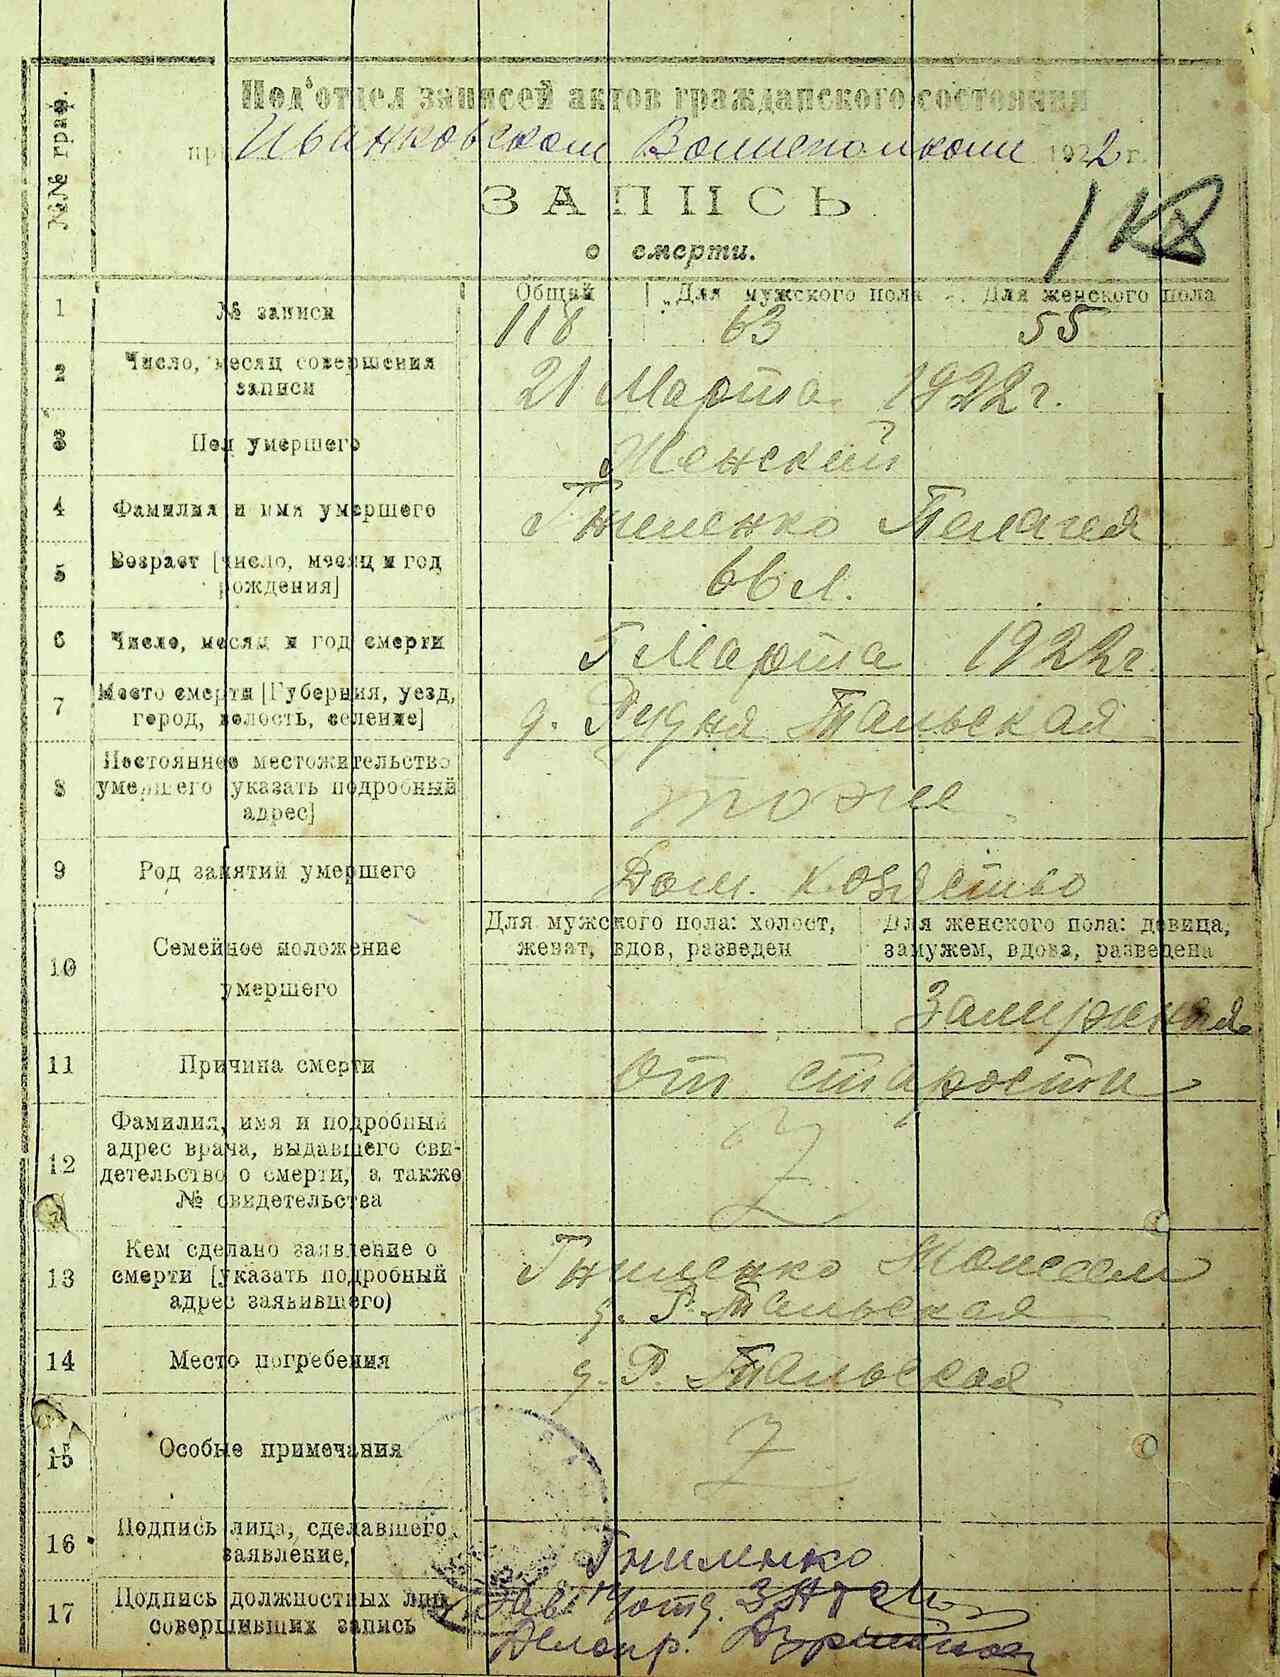 №№ граф.
Под'отдел записей актов гражданского состояния
при Иванковском Волисполкоме 1922 г.
ЗАПИСЬ
о смерти.
Общий Для мужского пола Для женского пола
1 № записи 118 63 55
2 Число, месяц совершения
записи
21 Марта 1922 г.
3 Пол умершего Женский
4 Фамилия и имя умершего Гниленко Пелагея
5 Возраст [число, месяц и год
рождения]
66 л.
6 Число, месяц и год смерти Марта 1922 г.
7 Место смерти [Губерния, уезд,
город, волость, селение]
д. Рудня Тальская
8 Постоянное местожительство
умершего [указать подробный
адрес]
тоже
9 Род занятий умершего Дом. козяство
10 Семейное положение
умершего
Для мужского пола: холост,
женат, вдов, разведен
Для женского пола: девица,
замужем, вдова, разведена
11 Причина смерти От старости
12 Фамилия, имя и подробный
адрес врача, выдавшего сви-
детельство о смерти, а также
№ свидетельства
13 Кем сделано заявление о
смерти [указать подробный
адрес заявившего)
Гниленко
д. Р. Тальская
14 Место погребения д. Р. Тальская
15 Особые примечания
16 Подпись лица, сделавшего
заявление,
Гниленко
17 Подпись должностных лиц,
совершивших запись
Зав. П/отд. ЗАГС
Делопр.